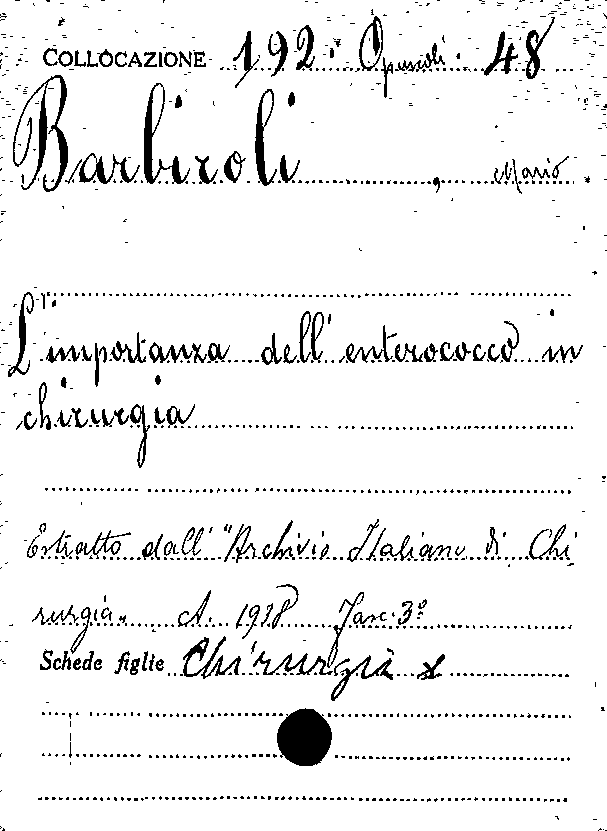 COLLOCAZIONE 192. Opuscoli. 48
Barbiroli, Mario.
L'importanza dell'enterococco in
chirurgia
Estratto dall'"Archivio Italiano di Chi
rurgia" A. 1938 Fasc. 3º
Schede figlie Chirurgia x